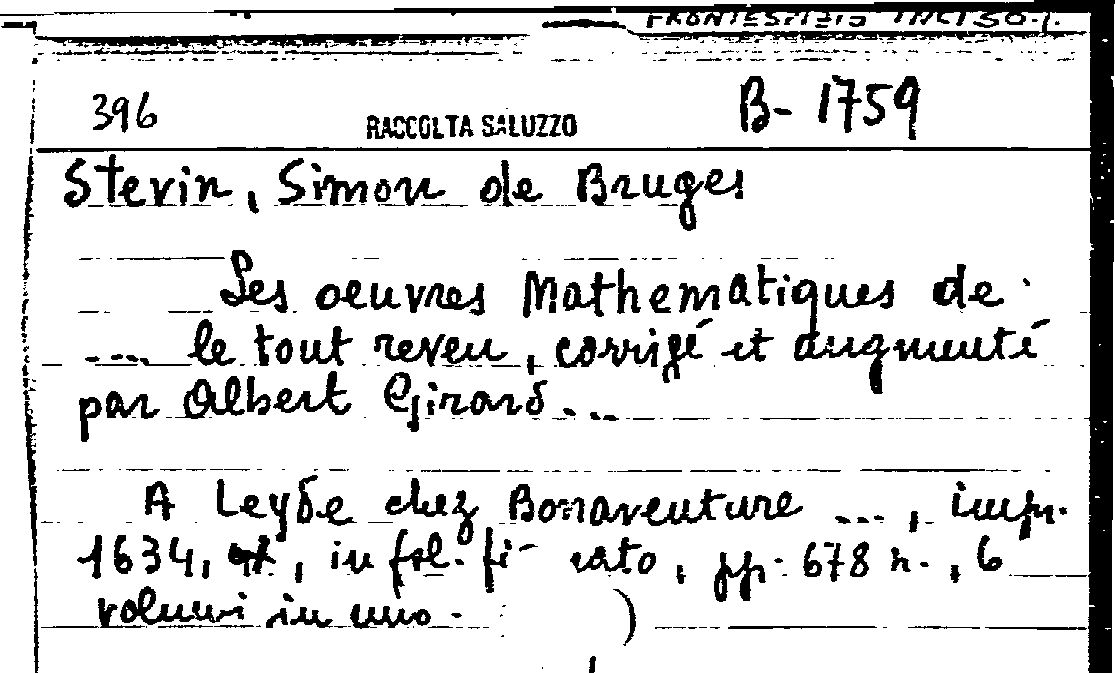 FRONTESPIZIO INCISO.
396 RACCOLTA SALUZZO B-1759
Stevin, Simon de Bruges
Les oeuvres Mathematiques de
.... le tout reveu, corrigé et augmenté
par Albert Girard...
A Leyde chez Bonaventure ..., impr.
1634, in fol. fi cato, pp. 678 n., 6
volumi in uno.